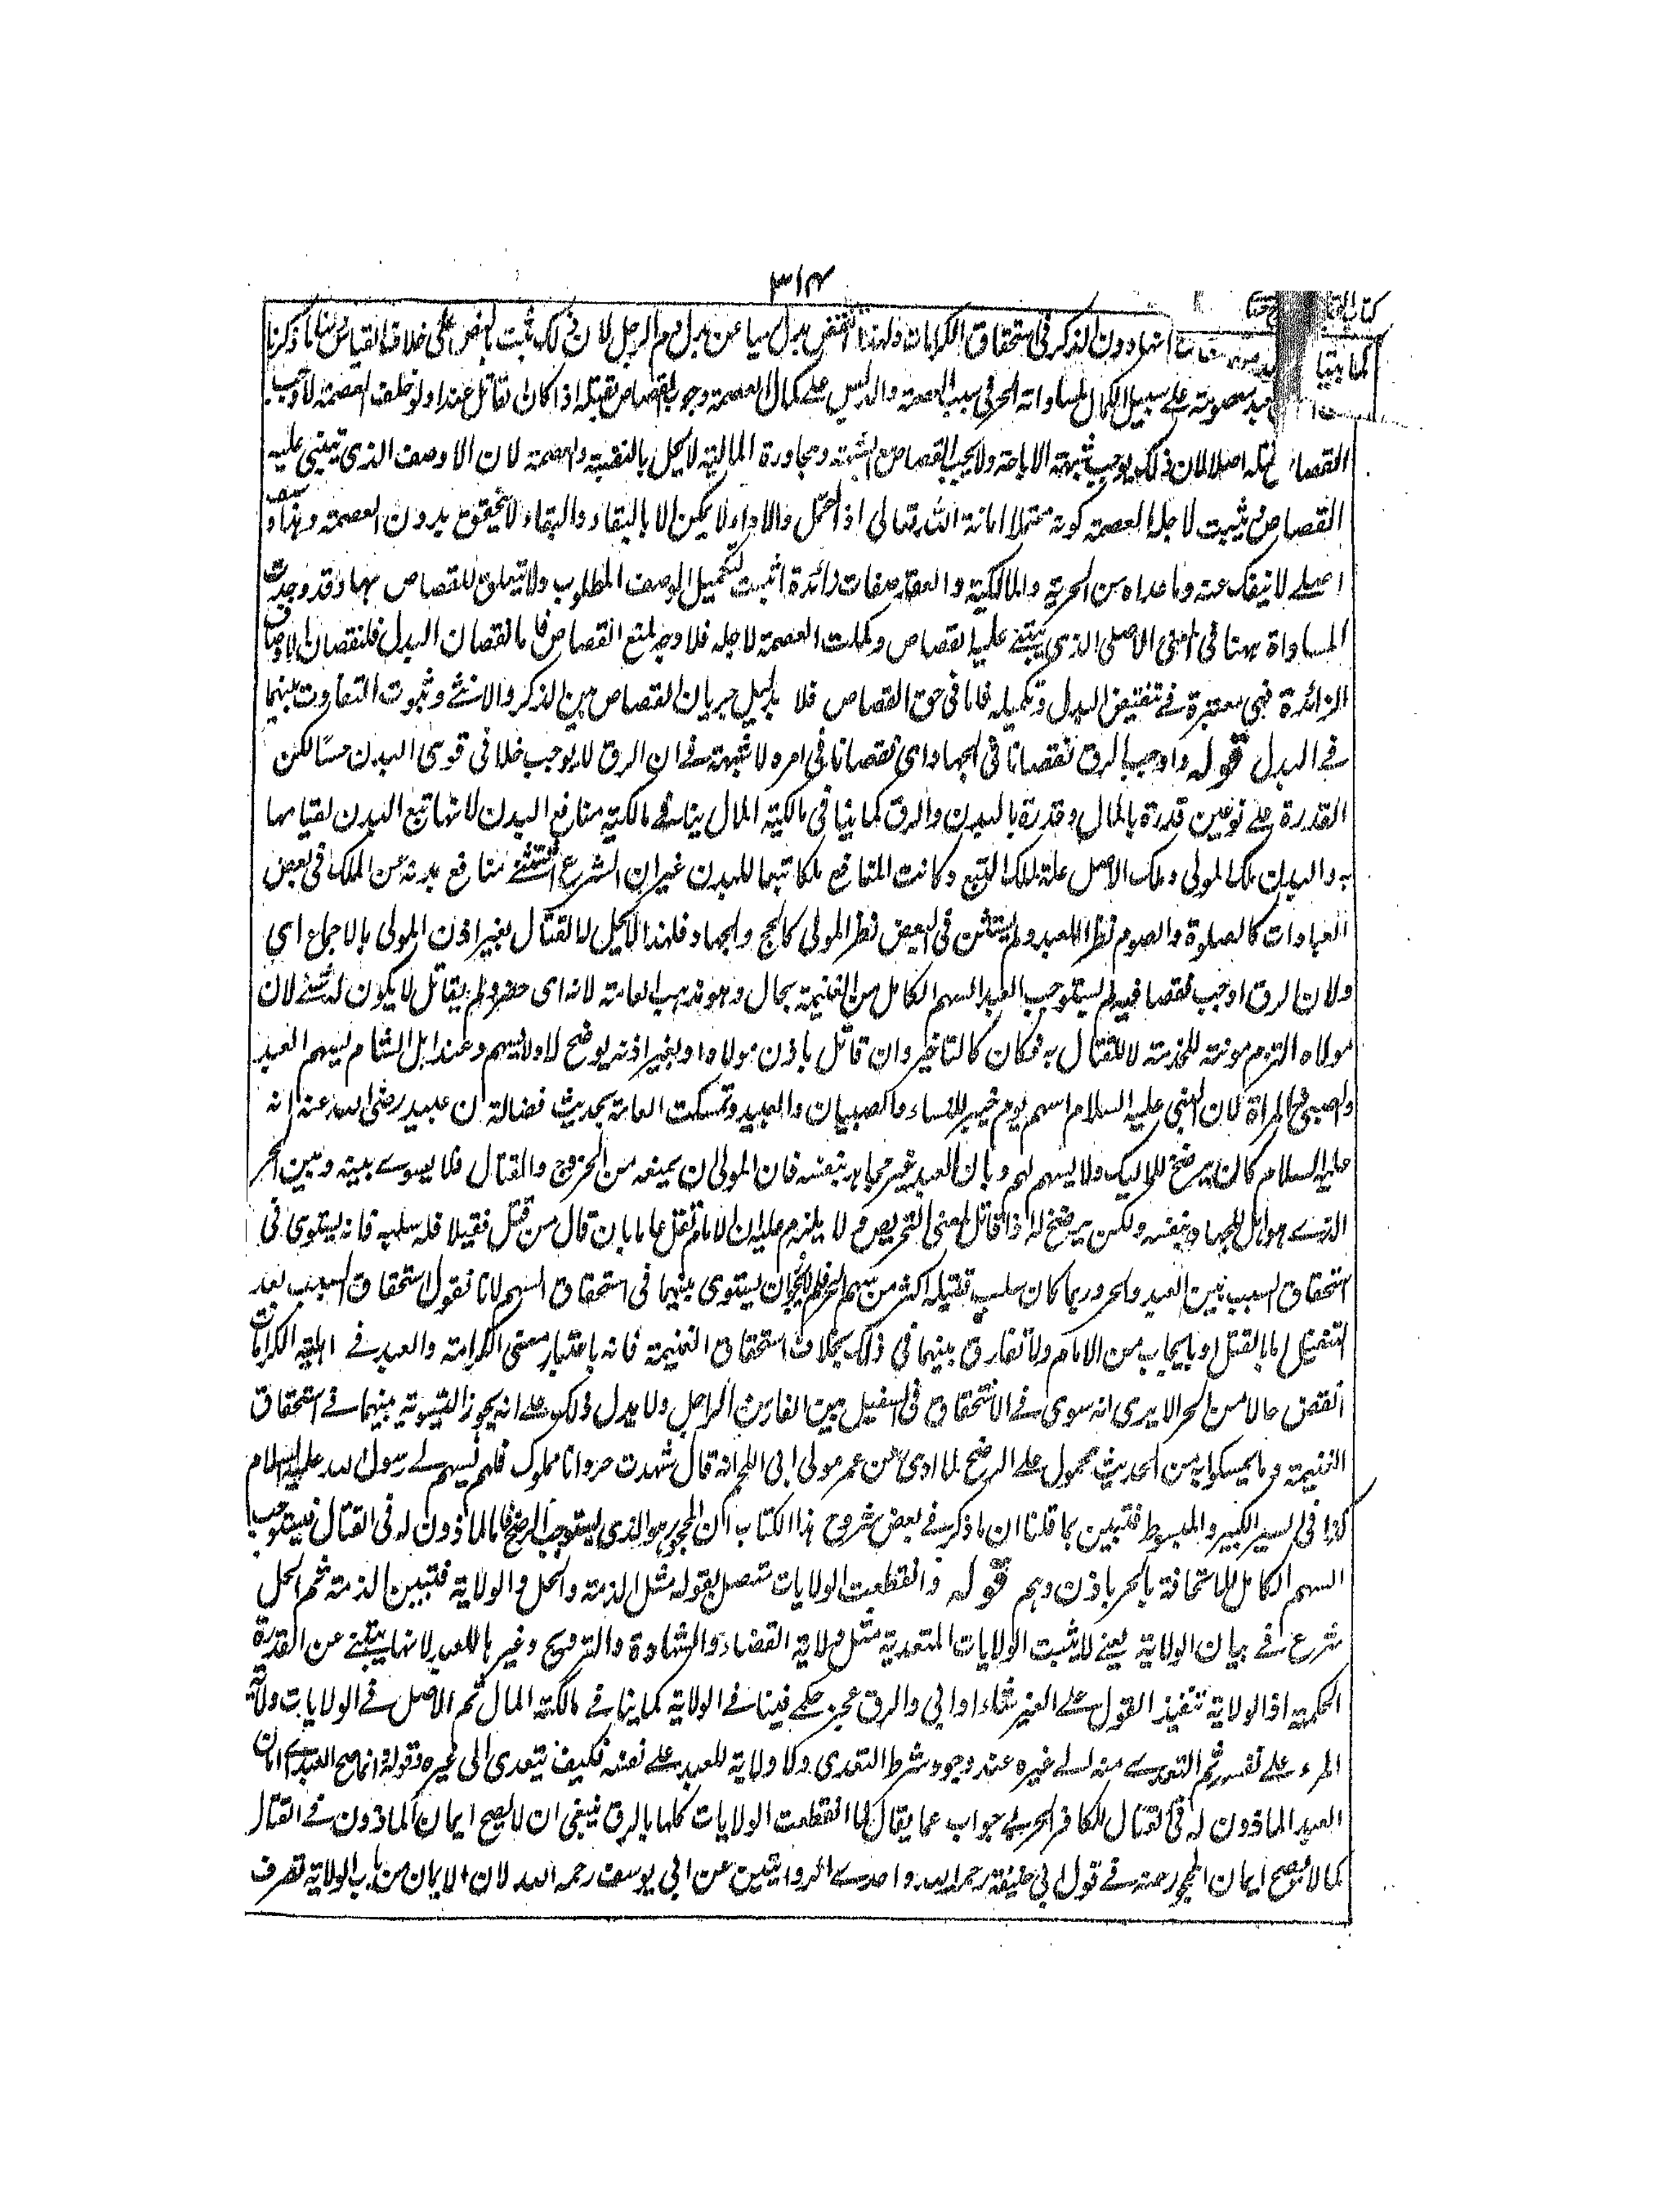 ٣١٤
انها دون الذكر فی استحقاق الکرامات ولهذا انتقص بدل دمها عن بدل دم الرجل لان ذلک ثبت بالنص علی خلاف القیاس بناء ما ذکرنا
معصومة علی سبیل الکمال لمساواته الحر فی سبب العصمة والدلیل علی کمال العصمة وجوب القصاص بقتله اذا کان القاتل عبدا ولو اختلفت العصمة لما وجب
القصاص بقتله اصلا لان ذلک یوجب شبهة الاباحة ولا یجب القصاص مع الشبهة ومجاورة المالیة لا یخل بالنفسیة والعصمة لان الاوصف الذی یبتنی علیه
القصاص یثبت لاجل العصمة کونه متحملا امانة الله تعالی اذ التحمل والاداء لا یمکن الا بالبقاء والبقاء لا یتحقق بدون العصمة وهذا وصف
اصلی لا ینفک عنه وما عداه من الحریة والمالکیة والعقل صفات زائدة اثبت لتکمیل الوصف المطلوب ولا یتعلق القصاص بها وقد وجدت
المساواة ههنا فی المعنی الاصلی الذی یبتنی علیه القصاص وکملت العصمة لاجله فلا وجه لمنع القصاص فاما نقصان البدل فلنقصان الاوصاف
الزائدة فهی معتبرة فی تنقیص البدل وتکمیله فاما فی حق القصاص فلا بدلیل جریان القصاص بین الذکر والانثی وثبوت التفاوت بینهما
فی البدل قوله واوجب الرق نقصانا فی الجهاد ای نقصانا فی امره لا شبهة فی ان الرق لا یوجب خللا فی قوی البدن حسا لکن
القدرة علی نوعین قدرة بالمال وقدرة بالبدن والرق کما ینافی مالکیة المال ینافی مالکیة منافع البدن لانها تبع البدن لقیامها
به والبدن ملک المولی وملک الاصل علة لملک التبع وکانت المنافع ملکا تبعا للبدن غیر ان الشرع استثنی منافع بدنه عن الملک فی بعض
العبادات کالصلوة والصوم نظرا للعبد ولم یستثن فی البعض نظرا لمولی کالحج والجهاد فلهذا لا یحل له القتال بغیر اذن المولی بالاجماع ای
ولان الرق اوجب نقصا فیه لم یستوجب العبد السهم الکامل من الغنیمة بحال وهو مذهب العامة لانه ای حضر ولم یقاتل لا یکون له شئ لان
مولاه التزم مونته للخدمة لا للقتال به فکان کالتاجر وان قاتل باذن مولاه او بغیر اذنه یرضخ له ولا یسهم وعند اهل الشام یسهم العبد
والصبی والمرأة لان النبی علیه السلام اسهم یوم خیبر للنساء والصبیان والعبید وتمسکت العامة بحدیث فضالة بن عبید رضی الله عنه انه
علیه السلام کان یرضخ للممالیک ولا یسهم لهم وبان العبد غیر مجاهد بنفسه فان المولی ان یمنعه من الخروج والقتال فلا یسوی بینه وبین الحر
الذی هو اهل للجهاد بنفسه ولکن یرضخ له اذا قاتل لمعنی التحریض ولا یلزم علیه ان الامام لو نفل عاما بان قال من قتل قتیلا فله سلبه فانه یستوی فی
استحقاق السلب بین العبد والحر وربما کان سلب قتیله اکثر من سهم الحر فلم لا یجوز ان یستوی بینهما فی استحقاق السهم لانا نقول استحقاق السلب بعد
التنفیل اما بالقتل او بایجاب من الامام ولا تفارق بینهما فی ذلک بخلاف استحقاق الغنیمة فانه باعتبار معنی الکرامة والعبد فی اهلیة الکرامات
انقص حالا من الحر الا یری انه سوی فی الاستحقاق فی التنفیل بین الفارس والراجل ولا یدل ذلک علی انه یجوز التسویة بینهما فی استحقاق
الغنیمة وما تمسکوا به من الحدیث محمول علی الرضخ لما روی عن عمر مولی ابی اللحم انه قال شهدت حر وانا مملوک فلم یسهم لی رسول الله علیه السلام
کذا فی السیر الکبیر والمبسوط فتبین بما قلنا ان ما ذکر فی بعض شروح هذا الکتاب ان المحجور هو الذی یستوجب الرضخ فاما الماذون له فی القتال فیستوجب
السهم الکامل لالتحاقه بالحر باذن وهم قوله وانقطعت الولایات متصل بقوله مثل الذمة والحل والولایة فتبین الذمة ثم الحل
شرع فی بیان الولایة یعنی لا یثبت الولایات المتعدیة مثل ولایة القضاء والشهادة والتزویج وغیرها للعبد لانها یبتنی عن القدرة
الحکمیة اذ الولایة تنفیذ القول علی الغیر شاء او ابی والرق عجز حکمی فینافی الولایة کما ینافی مالکیة المال ثم الاصل فی الولایات ولایة
المرء علی نفسه ثم التعدی منه الی غیره عند وجود شرط التعدی ولا ولایة للعبد علی نفسه فکیف یتعدی الی غیره وقوله انما صح العبد ای امان
العبد الماذون له فی القتال للکافر الحربی جواب عما یقال لما انقطعت الولایات کلها بالرق ینبغی ان لا یصح ایمان الماذون فی القتال
کما لا یصح ایمان المحجور عنه فی قول ابی حنیفة رحمه الله واحدی الروایتین عن ابی یوسف رحمه الله لان الایمان من باب الولایة تصرف